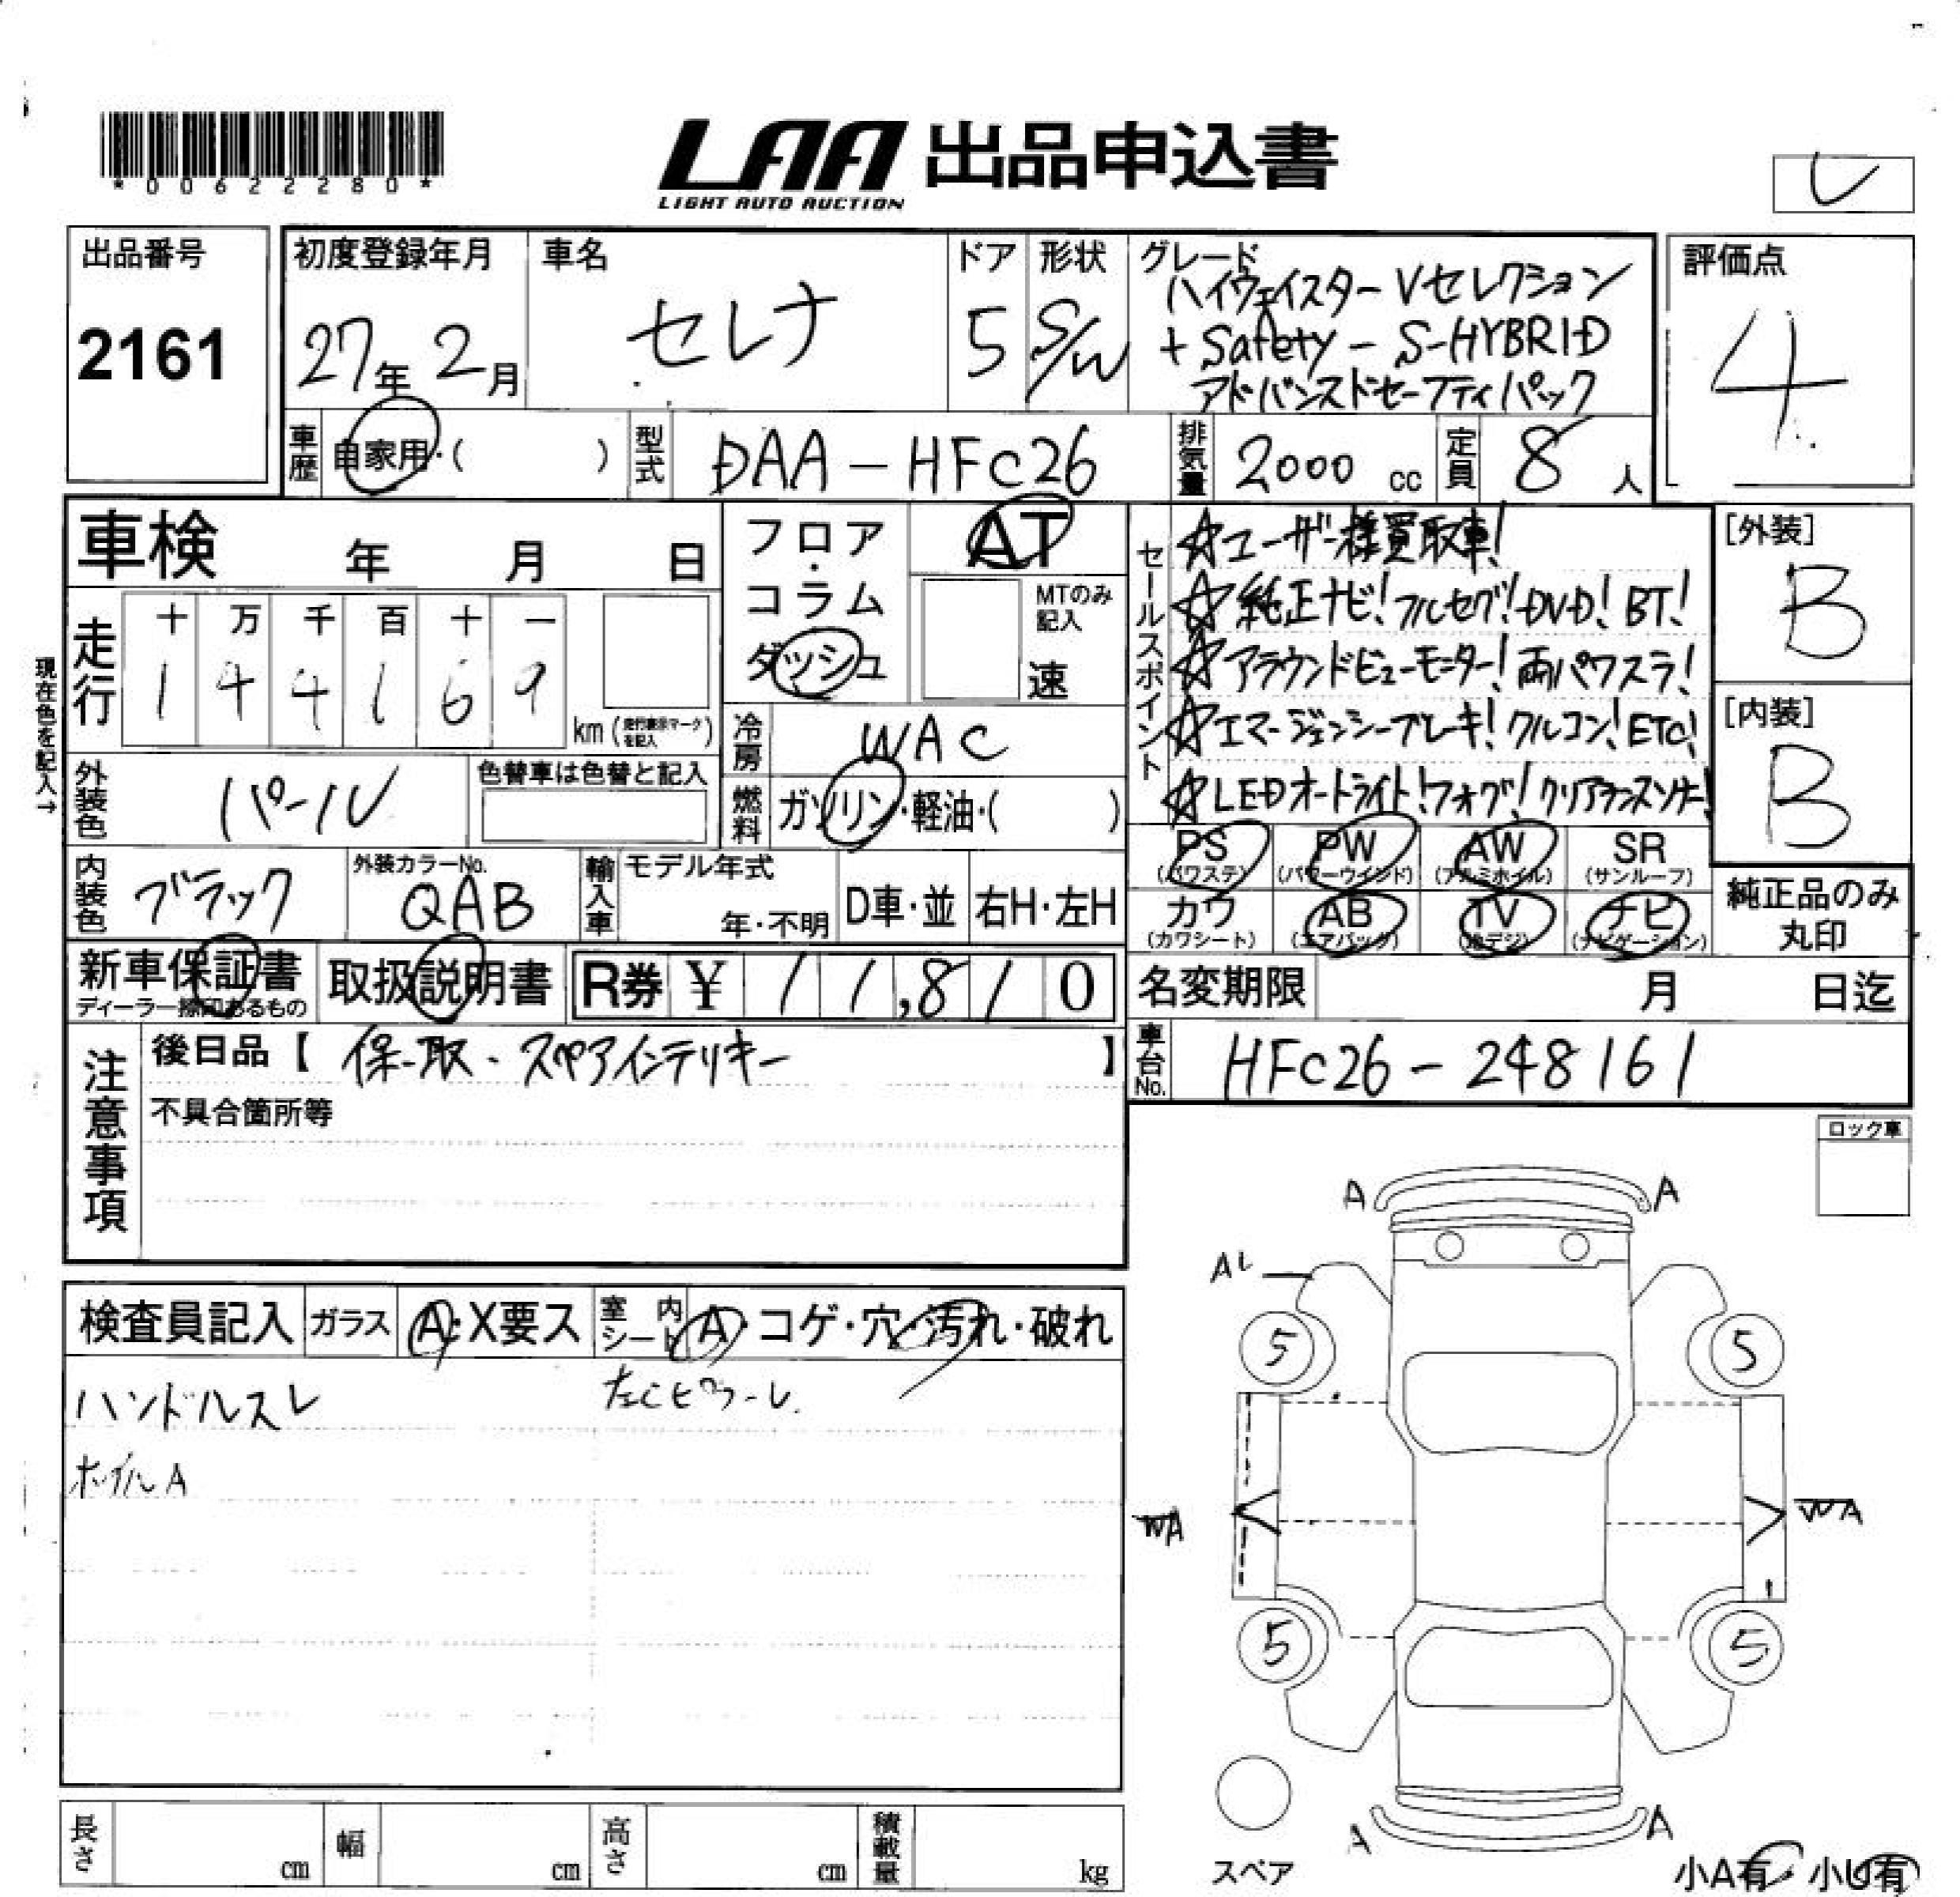 *00622280*
LAA 出品申込書
LIGHT AUTO AUCTION
レ
出品番号
2161
初度登録年月
27年 2月
車名
セレナ
ドア
5
形状
S/W
グレード
ハイウェイスター Vセレクション
+ Safety - S-HYBRID
アドバンスドセーフティパック
評価点
4
車歴 自家用・( )
型式 DAA-HFC26
排気量 2000 cc
定員 8 人
車検 年 月 日
フロア・コラム
ダッシュ
AT
MTのみ記入
速
走行
十 万 千 百 十 一
1 4 4 1 6 9
km (走行表示マークを記入)
現在色を記入→
冷房 WAC
外装色 パール
色替車は色替と記入
燃料 ガソリン・軽油・( )
内装色 ブラック
外装カラーNo.
QAB
輸入車
モデル年式
年・不明
D車・並
右H・左H
セールスポイント
☆ユーザー様買取車!
☆純正ナビ!フルセグ!DVD!BT!
☆アラウンドビューモニター!両パワスラ!
☆エマージェンシーブレーキ!クルコン!ETC!
☆LEDオートライト!フォグ!クリアランスソナー!
[外装]
B
[内装]
B
PS (パワステ)
PW (パワーウインド)
AW (アルミホイル)
SR (サンルーフ)
カワ (カワシート)
AB (エアバック)
TV (地デジ)
ナビ (ナビゲーション)
純正品のみ
丸印
新車保証書
ディーラー捺印あるもの
取扱説明書
R券 ¥ 11,810
名変期限 月 日迄
車台No. HFC26-248161
注意事項
後日品【 保・取・スペアインテリキー 】
不具合箇所等
ロック車
検査員記入
ガラス A・X要ス
室内シート A・コゲ・穴・汚れ・破れ
ハンドルスレ
左Cピラーレ
ホイルA
A
A
AL
5
5
WA
WA
5
5
A
A
スペア
小A有・小U有
長さ cm
幅 cm
高さ cm
積載量 kg